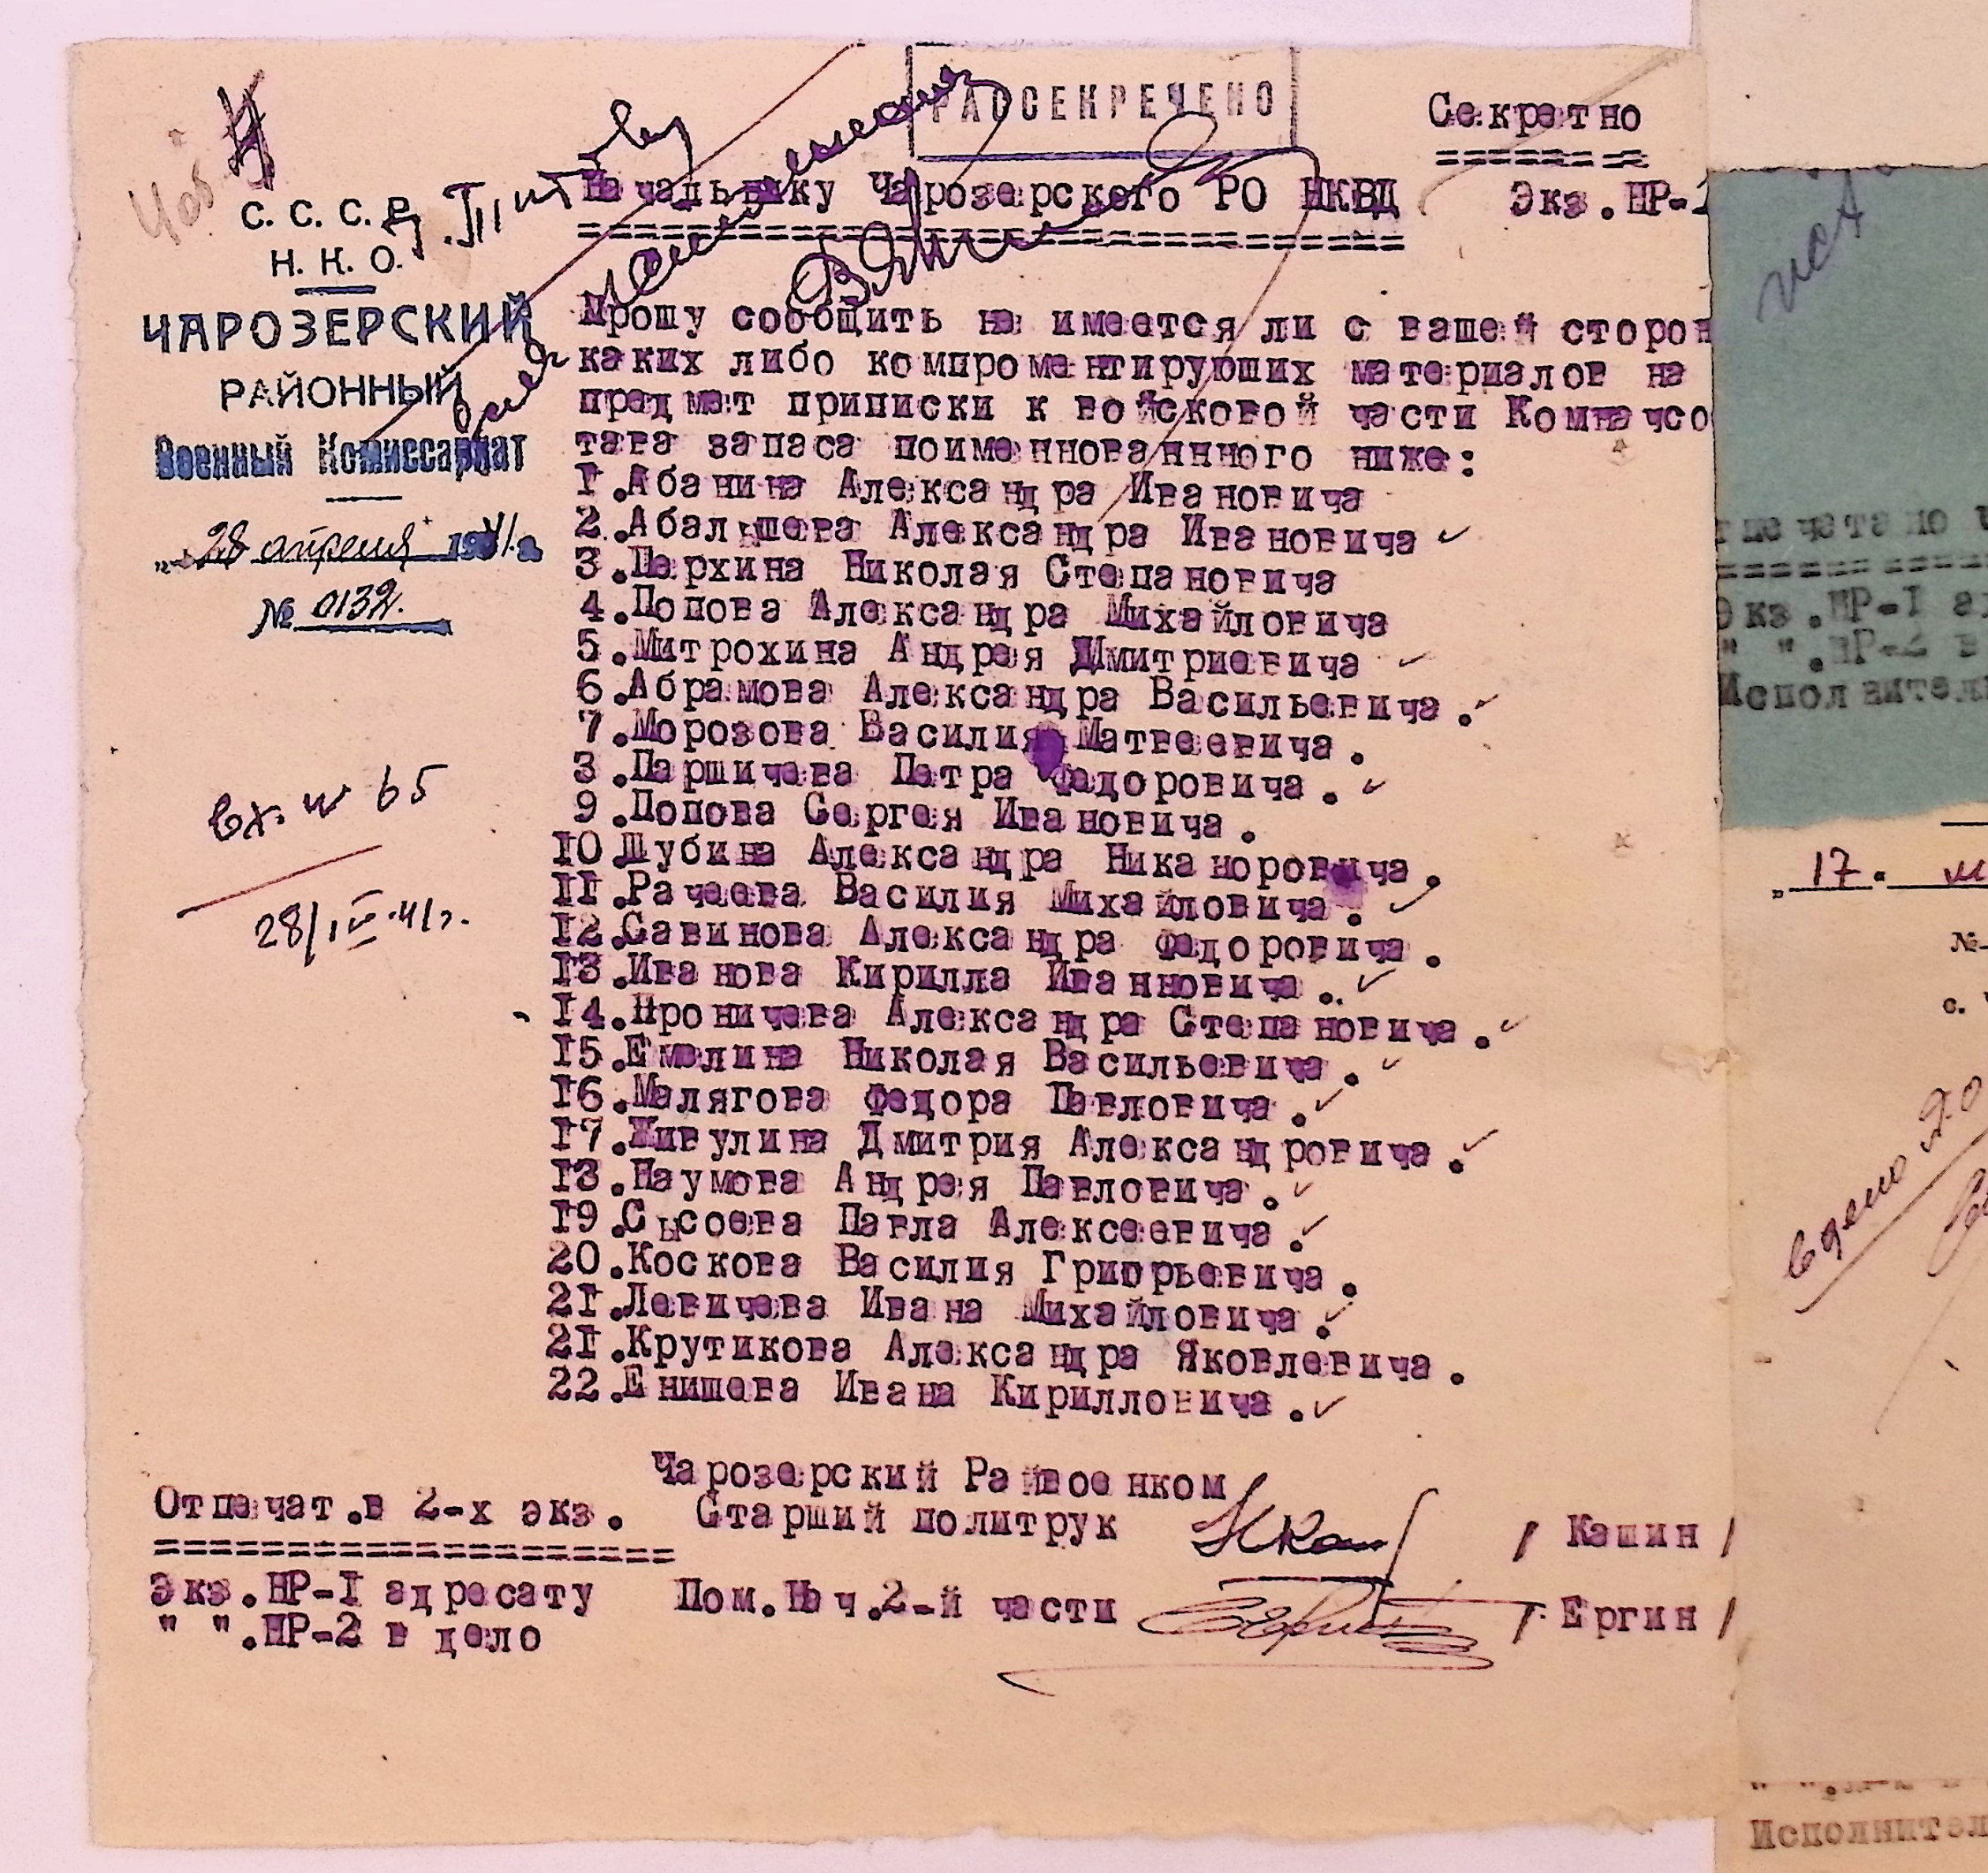 РАССЕКРЕЧЕНО
Секретно
Начальнику Чарозерского РО НКВД
Экз.НР-1
С. С. С. Р.
Н. К. О.
ЧАРОЗЕРСКИЙ
РАЙОННЫЙ
Военный Комиссариат
„28 апреля 1941г.
№ 0132.
вх. № 65
28/IV-41г.
Прошу сообщить не имеется ли с вашей сторон
каких либо компроментирующих материалов на
предмет приписки к войсковой части Комначсо
тава запаса поименнованнного ниже:
I.Абанина Александра Ивановича
2.Абалышева Александра Ивановича
3.Перхина Николая Степановича
4.Попова Александра Михайловича
5.Митрохина Андрея Дмитриевича
6.Абрамова Александра Васильевича.
7.Морозова Василия Матвеевича.
3.Паршичева Петра Федоровича.
9.Попова Сергея Ивановича.
IO.Шубина Александра Никаноровича.
II.Рачеева Василия Михайловича.
I2.Савинова Александра Федоровича.
I3.Иванова Кирилла Иванновича.
I4.Проничева Александра Степановича.
I5.Емелина Николая Васильевича.
I6.Малягова Федора Павловича.
I7.Живулина Дмитрия Александровича.
I3.Наумова Андрея Павловича.
I9.Сысоева Павла Алексеевича.
20.Коскова Василия Григорьевича.
2I.Левичева Ивана Михайловича.
2I.Крутикова Александра Яковлевича.
22.Енишева Ивана Кирилловича.
Чарозерский Райвоенком
Старший политрук / Кашин /
Отпечат.в 2-х экз.
Экз.НР-I адресату
" ".НР-2 в дело
Пом.Нач.2-й части / Ергин /
Экз.НР-I
" ".НР-2 в
„17"
№
с.
в дело